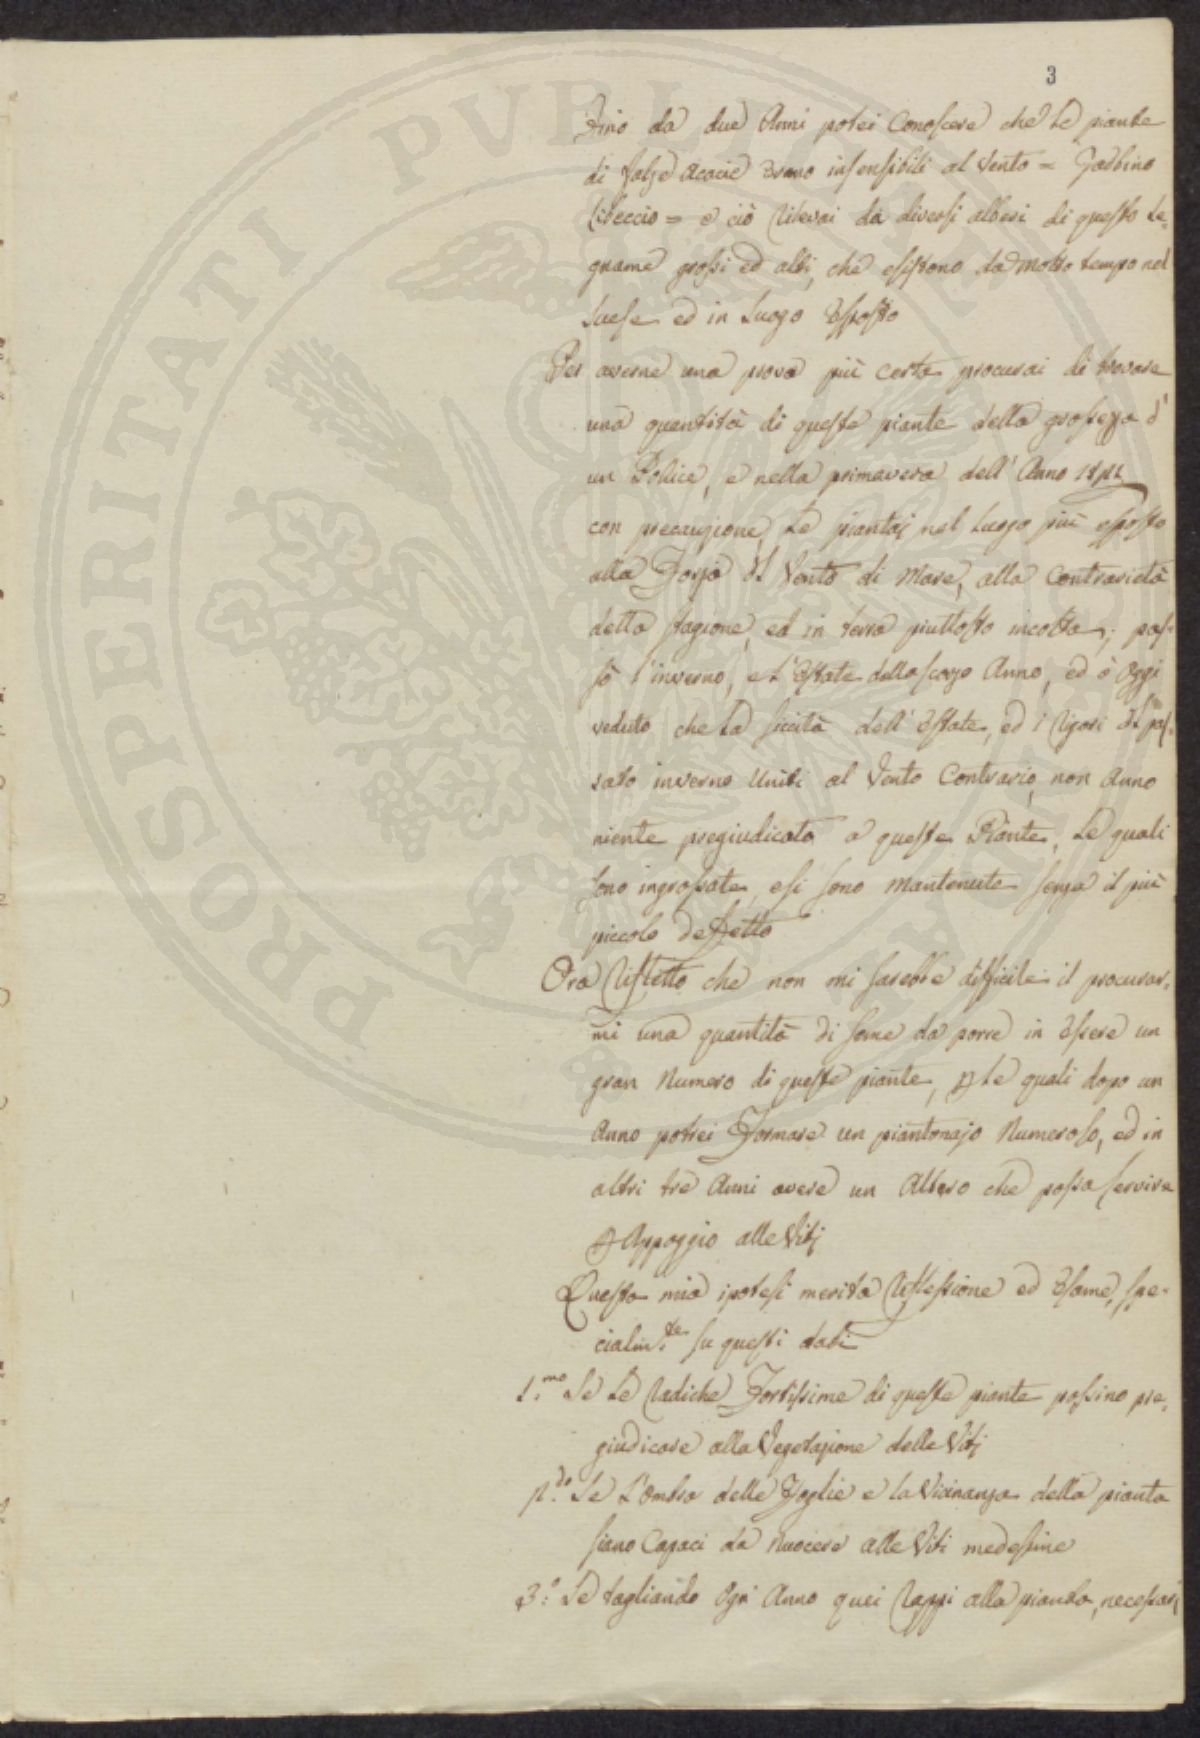 3
Fino da due Anni potei Conoscere che le piante
di false Acacie Erano insensibili al Vento = Garbino
Libeccio = e ciò Rilevai da diversi alberi di questo Le-
gname grossi ed alti, che esistono da Molto tempo nel
ed in Luogo Esposto
Per averne una prova più Certa procurai di trovare
una quantità di queste piante della grossezza d'
un Pollice, e nella primavera dell'Anno
con precauzione Le piantaj nel Luogo più esposto
alla Forza Del Vento di Mare, alla Contrarietà
della stagione, ed in terra piuttosto incolta; pas-
sò l'inverno, e L'Estate dello scorzo Anno, ed ò Oggi
veduto che La siccità dell'Estate, ed i Rigori Del pas-
sato inverno Uniti al Vento Contrario, non Anno
niente pregiudicato a queste Piante, Le quali
sono ingrossate, e si sono Mantenute senza il più
piccolo deffetto
Ora Rifletto che non mi sarebbe difficile il procurar-
mi una quantità di seme da porre in Essere un
gran Numero di queste piante, Le quali dopo un
Anno potrei Formare un piantonajo Numeroso, ed in
altri tre Anni avere un Albero che possa servire
d'Appoggio alle Vitj
Questa mia ipotesi merita Riflessione ed Esame, spe-
cialm.te su questi dati
1.mo Se Le Radiche Fortissime di queste piante possino pre-
giudicare alla Vegetazione delle Vitj
2.do Se L'Ombra delle Foglie e la Vicinanza della pianta
siano Capaci da Nuocere alle Viti medesime
3.o Se tagliando Ogni Anno quei Rappi alla pianta, necessarj
PROSPERITATI PVBLICAE AVGENDAE